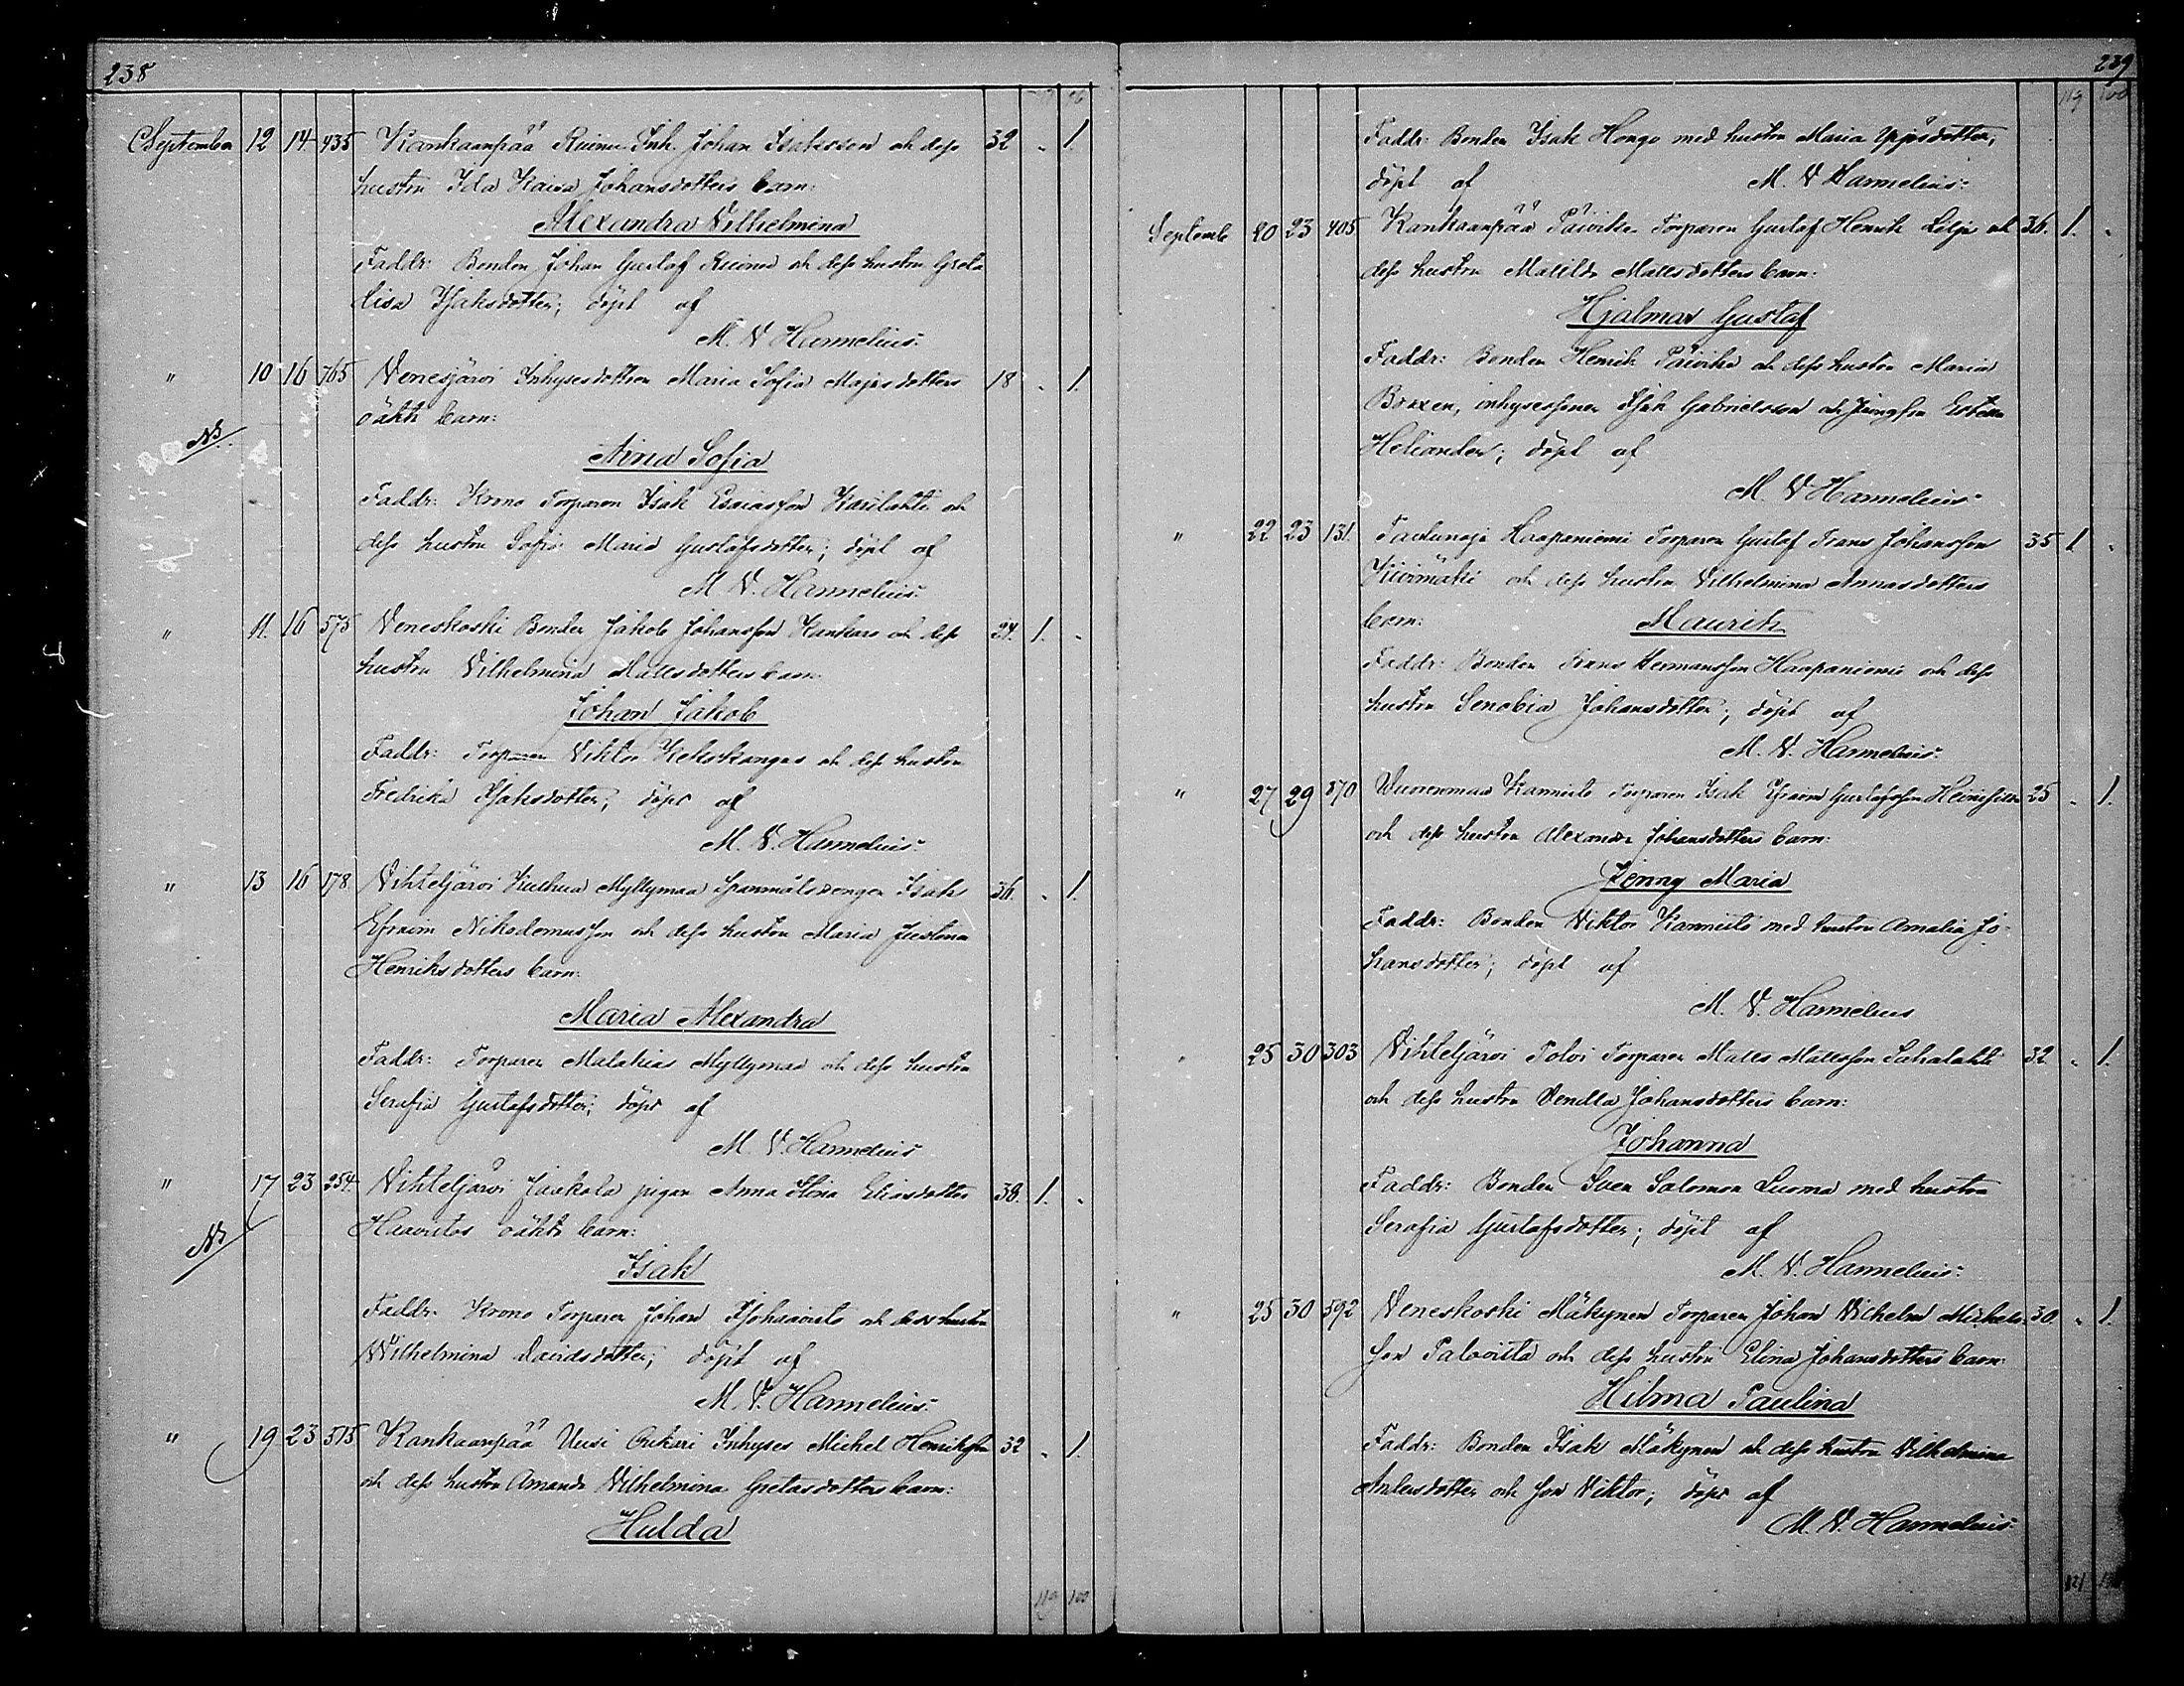 238
September 12 14 435 Kankaanpää Ruima Inh. Johan Isaksson och dess 32 „ 1.
hustru Ida Kaisa Johansdotters barn:
Alexandra Vilhelmina
Faddr: Bonden Johan Gustaf Ruima och dess hustru Greta
Lisa Isaksdotter; döpt af
M. V. Hannelius.
" 10 16 765 Venesjärvi Inhysesdottren Maria Sofia Majasdotters 18 „ 1.
oäkta barn:
Nb
Aina Sofia
Faddr: Krono Torparen Isak Esaiasson Karilahti och
dess hustru Sofia Maria Gustafsdotter; döpt af
M. V. Hannelius.
" 11. 16 575 Veneskoski Bonden Jakob Johansson Kankaro och dess 24. 1. „
hustru Vilhelmina Mattsdotters barn:
Johan Jakob
Faddr: Torparen Viktor Keskikangas och dess hustru
Fredrika Isaksdotter; döpt af
M. V. Hannelius.
" 13 16 178. Vihteljärvi Kuhua Myllymaa Spanmålsdrengen Isak 36. „ 1.
Efraim Nikodemusson och dess hustru Maria Justina
Henriksdotters barn:
Maria Alexandra
Faddr: Torparen Malakias Myllymaa och dess hustru
Serafia Gustafsdotter; döpt af
M. V. Hannelius
" 17 23 254. Vihteljärvi Jaakola pigan Anna Stina Eliasdotter 38. 1. „
Haavistos oäkta barn:
Nb
Isak
Faddr. Krono Torparen Johan Isohaavisto och dess hustru
Wilhelmina Davidsdotter; döpt af
M. V. Hannelius.
" 19 23 515 Kankaanpää Uusi Inhyses Michel Henriksson 32 „ 1.
och dess hustru Amanda Vilhelmina Gretasdotters barn:
Hulda
119 100
239
119 100
Faddr: Bonden Isak Hongo med hustru Maria Yrjösdotter;
döpt af M. V. Hannelius.
Septemb 20 23 405 Kankaanpää Päivike Torparen Gustaf Henrik Lilja och 36. 1. „
dess hustru Matilda Mattsdotters barn:
Hjalmar Gustaf
Faddr: Bonden Henrik Päivike och dess hustru Maria
inhysessonen Isak Gabrielsson och Jungfrun
Heliander; döpt af
M. V. Hannelius
" 22 23 131. Haapaniemi Torparen Gustaf Frans Johansson 35 1 „
Kivimäki och dess hustru Vilhelmina Annasdotters
barn: Maurits
Faddr: Bonden Frans Hermansson Haapaniemi och dess
hustru Senobia Johansdotter; döpt af
M. V. Hannelius.
" 27 29 870 Vuorenmaa Kannisto Torparen Isak Efraim Gustafsson 25 „ 1.
och dess hustru Alexandra Johansdotters barn:
Jenny Maria
Faddr: Bonden Viktor Kannisto med hustru Amalia Jo-
hansdotter; döpt af
M. V. Hannelius
" 25 30 303 Vihteljärvi Polvi Torparen Matts Mattsson Suhalahti 32 „ 1.
och dess hustru Vendla Johansdotters barn:
Johanna
Faddr: Bonden Sven Salomon Luoma med hustru
Serafia Gustafsdotter; döpt af
M. V. Hannelius.
" 25 30 592 Veneskoski Mäkynen Torparen Johan Vilhelm Mickels- 30. „ 1.
son Paloviita och dess hustru Elina Johansdotters barn:
Hilma Paulina
Faddr: Bonden Isak Mäkynen och dess hustru Vilhelmina
Andersdotter och son Viktor; döpt af
M. V. Hannelius.
121